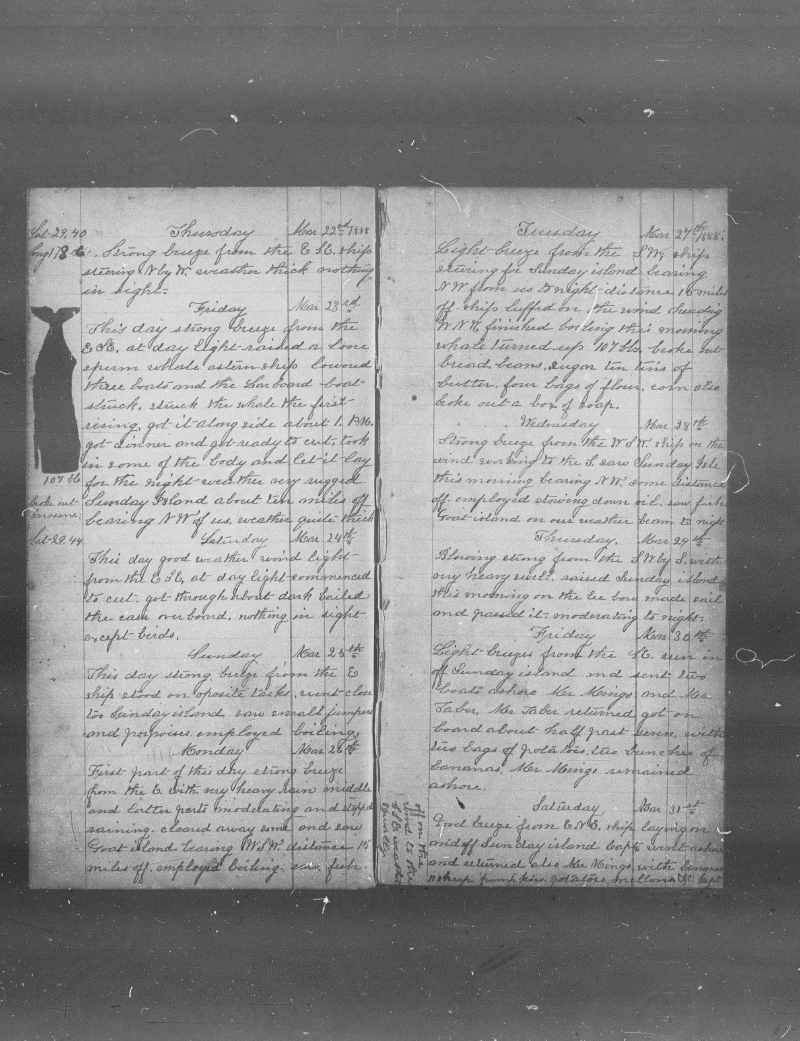 Lat 29.40 Thursday Mar 22nd 1888
Long 178 6 Strong breeze from the E SE. ship
steering N by W. weather thick nothing
in sight.
Friday Mar 23rd
This day strong breeze from the
E SE. at day light raised a lone
sperm whale astern ship lowered
three boats and the Larboard boat
struck. struck the whale the first
rising, got it along side about 1. P.M.
got dinner and got ready to cut, took
in some of the body and let it lay
for the night weather very rugged
107 bb
broke out
kerosene
Sunday Island about ten miles off
bearing NW of us. weather quite thick
Lat-29.44 Saturday Mar 24th
This day good weather wind light
from the E SE, at day light commenced
to cut. got through about dark boiled
the case over board, nothing in sight
except birds.
Sunday Mar 25th
This day strong breeze from the E
ship stood on oposite tacks, went close
too Sunday island saw small jumpers
and porpoises. employed boiling.
Monday Mar 26th
First part of this day strong breeze
from the E with very heavy rain middle
and latter parts moderating and stopped
raining. cleared away some and saw
Goat island bearing WSW. distance 15
miles off. employed boiling. saw fish.
Tuesday Mar 27th 1888.
Light breeze from the SW. ship
steering for Sunday island bearing
NW from us to night distance 15 miles
off. ship luffed on the wind heading
WNW. finished boiling this morning
whale turned up 107 bb. broke out
bread, beans, sugar ten tins of
butter, four bags of flour, corn also
broke out a box of soap.
Wednesday Mar 28th
Strong breeze from the W SW. ship on the
wind working to the S. saw Sunday Isle
this morning bearing NW. some distance
off employed stowing down oil. saw fish
Goat island on our weather beam to night
Thursday. Mar 29th
Blowing strong from the SW by S. with
very heavy swell. raised Sunday island
this morning on the lee bow made sail
and passed it. moderating to night.
Friday Mar 30th
Light breezes from the SE. run in
of Sunday island and sent two
boats ashore Mr Mingo and Mr
Taber, Mr Taber returned got on
board about half past seven, with
two bags of potatoes, two bunches of
bananas, Mr Mingo remained
ashore.
Saturday Mar 31st
Good breeze from E N E. ship laying on
and off Sunday island Capt went ashore
and returned also Mr Mingo, with bananas
sheep pumpkins, potatoes, mellons &c kept
off on the
wind to the
SSE weather